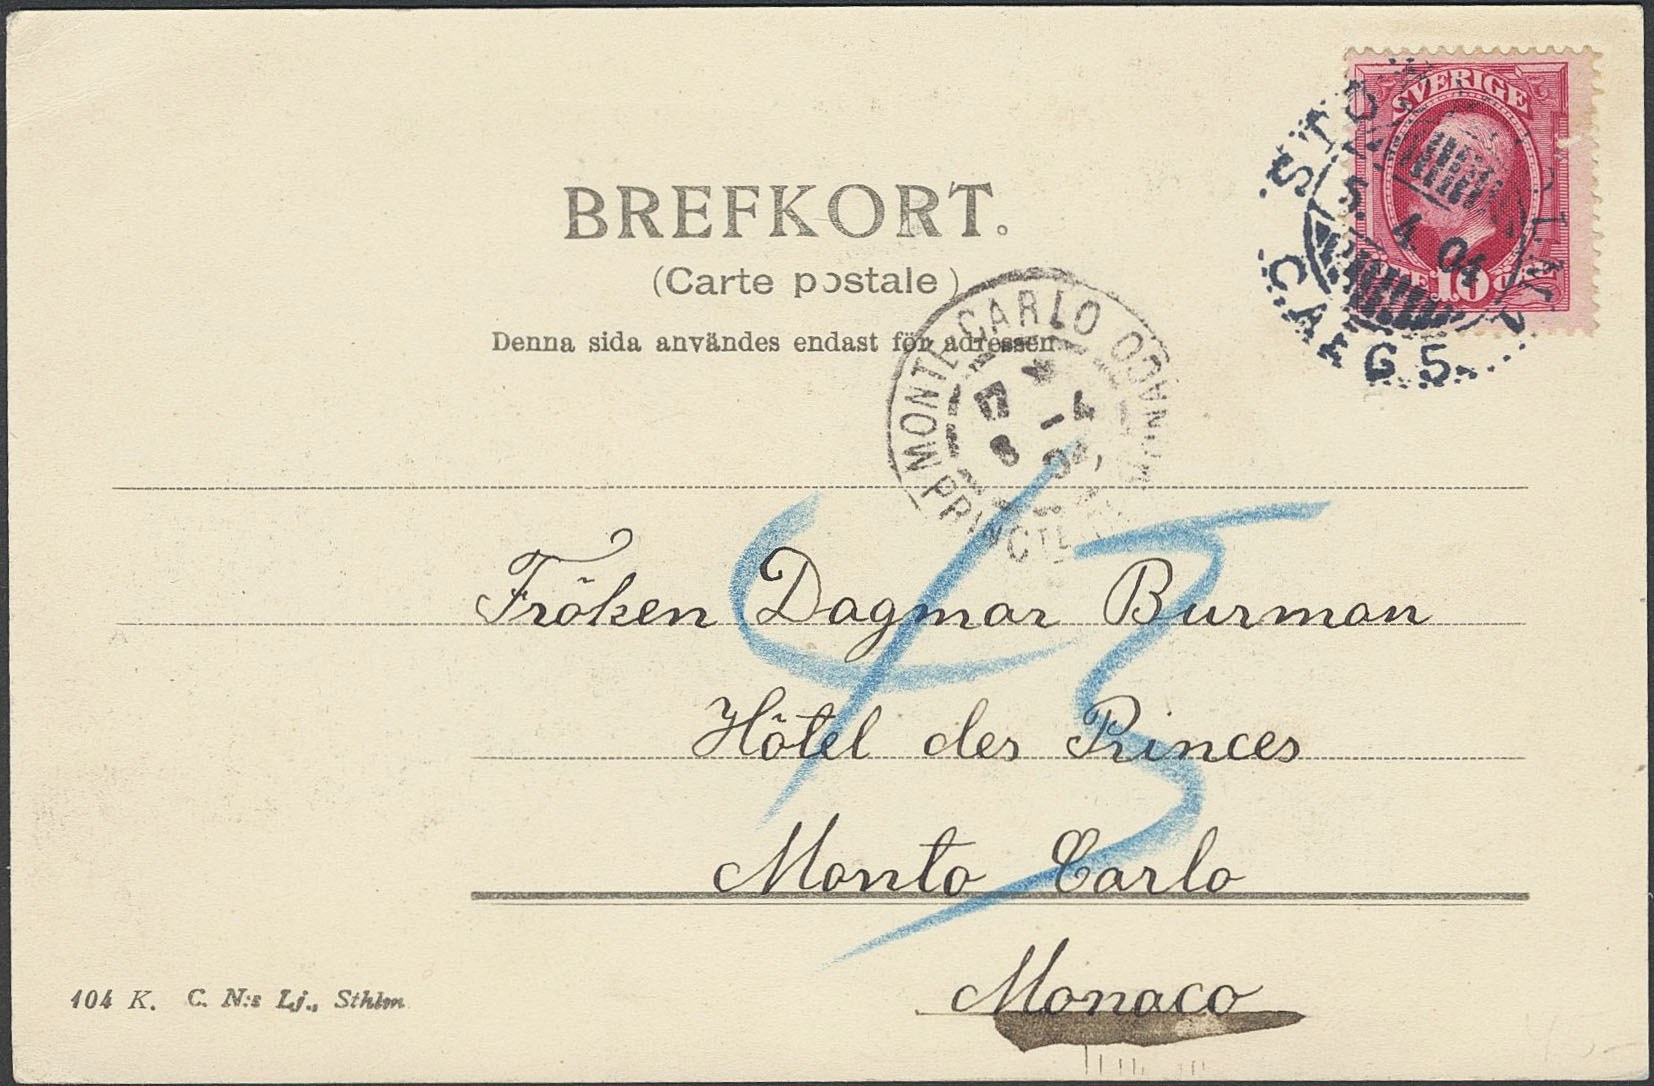 SVERIGE
10
5. 4. 04
C.A.F.G 5.
BREFKORT.
(Carte postale)
Denna sida användes endast för adressen
MONTE-CARLO
17 4
8
43
Fröken Dagmar Burman
Hôtel des Princes
Monto Carlo
Monaco
104 K. C. N:s Lj., Sthlm